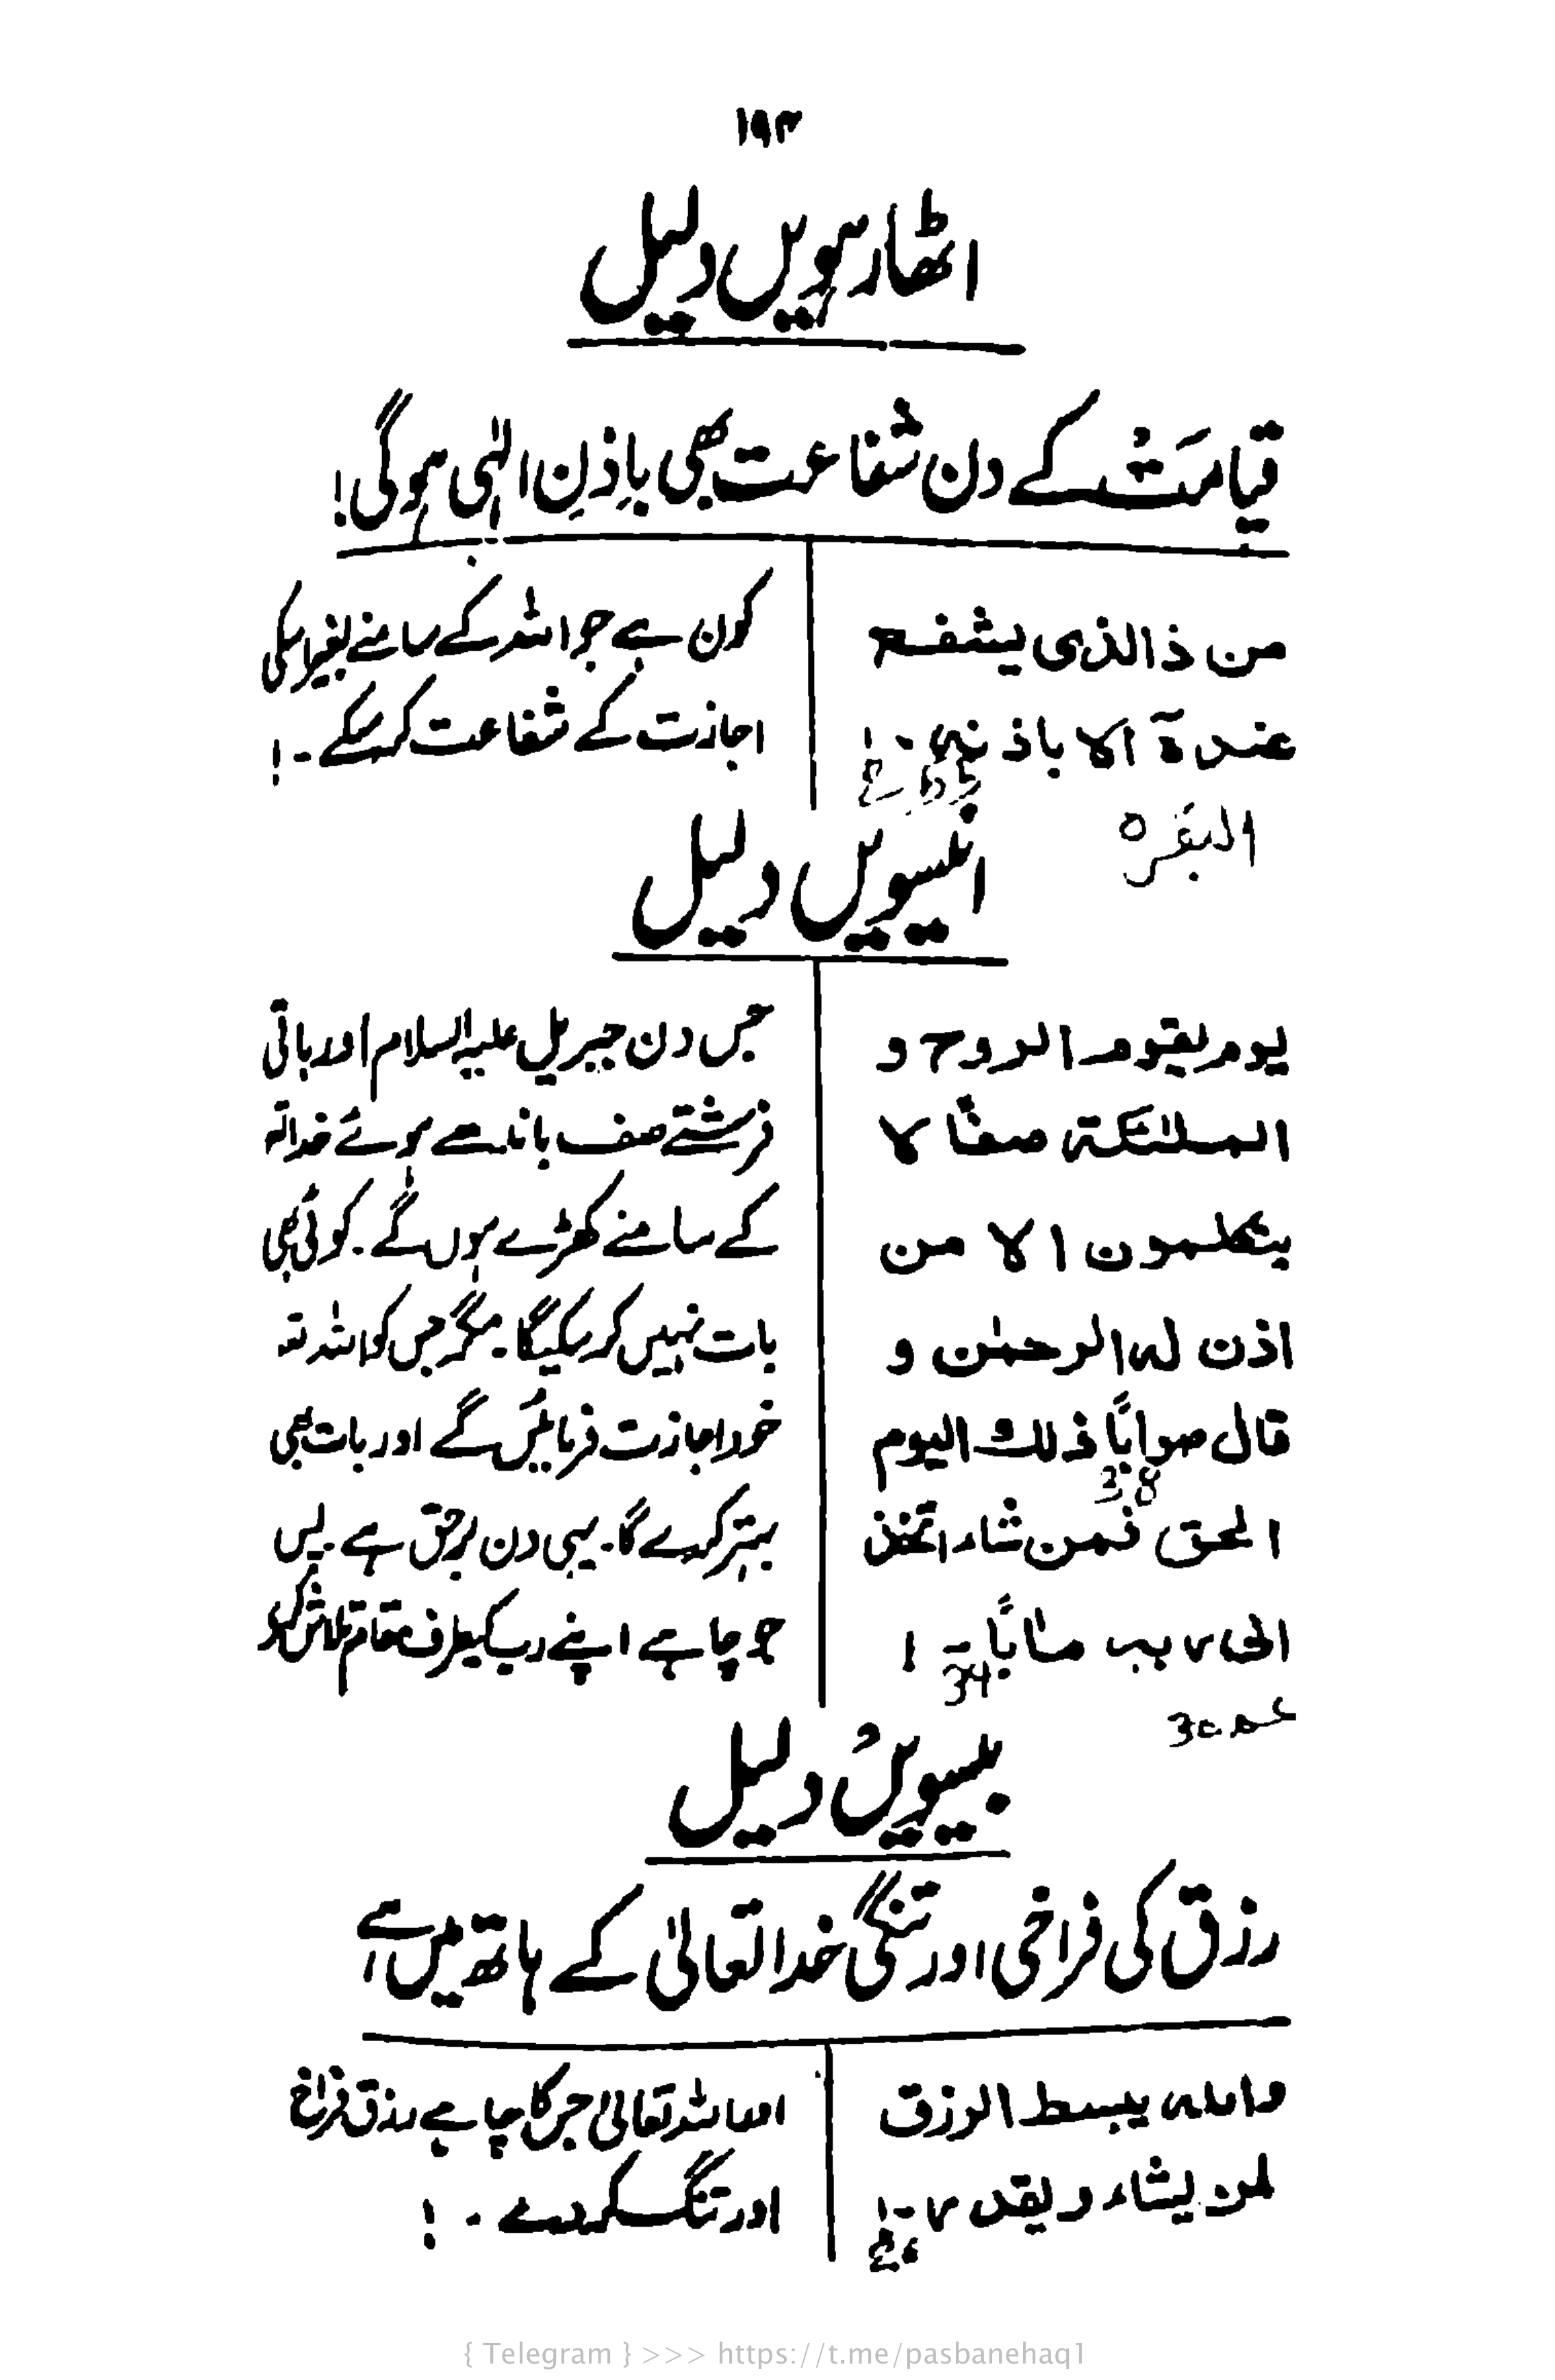 ۱۹۳
اٹھارہویں دلیل
قیامت کے دن شفاعت بھی بِاِذنِ الٰہی ہوگی!
من ذا الذی یشفع
عندہٗ الا باذنہٖ ۔!
البقرہ
کون ہے جو اللہ کے سامنے بغیر اسکی
اجازت کے شفاعت کرسکے ۔!
انیسویں دلیل
یوم یقوم الروح و
الملائکۃ صفًا لا
یتکلمون الا من
اذن لہ الرحمٰن و
قال صوابًا ذلک الیوم
38
الحق فمن شاء اتخذ
الی ربہ مآبًا ۔!
جس دن جبریل علیہ السلام اور باقی
فرشتے صف باندھے ہوئے خدا تہ
کے سامنے کھڑے ہوں گے ۔ کوئی بھی
بات نہیں کرسکیگا ۔ مگر جس کو اللہ تہ
خود اجازت فرمائیں گے اور بات بھی
بہتر کرے گا ۔ یہی دن برحق ہے ۔ پس
جو چاہے اپنے رب کیطرف مقام تلاش کر
بیسویں دلیل
رزق کی فراخی اور تنگی خدا تعالیٰ کے ہاتھ میں ہے!
واللہ یبسط الرزق
لمن یشاء و یقدر ۔!
اور اللہ تعالیٰ جس کا چاہے رزق فراخ
اور تنگ کردے ۔ !
{ Telegram } >>> https://t.me/pasbanehaq1